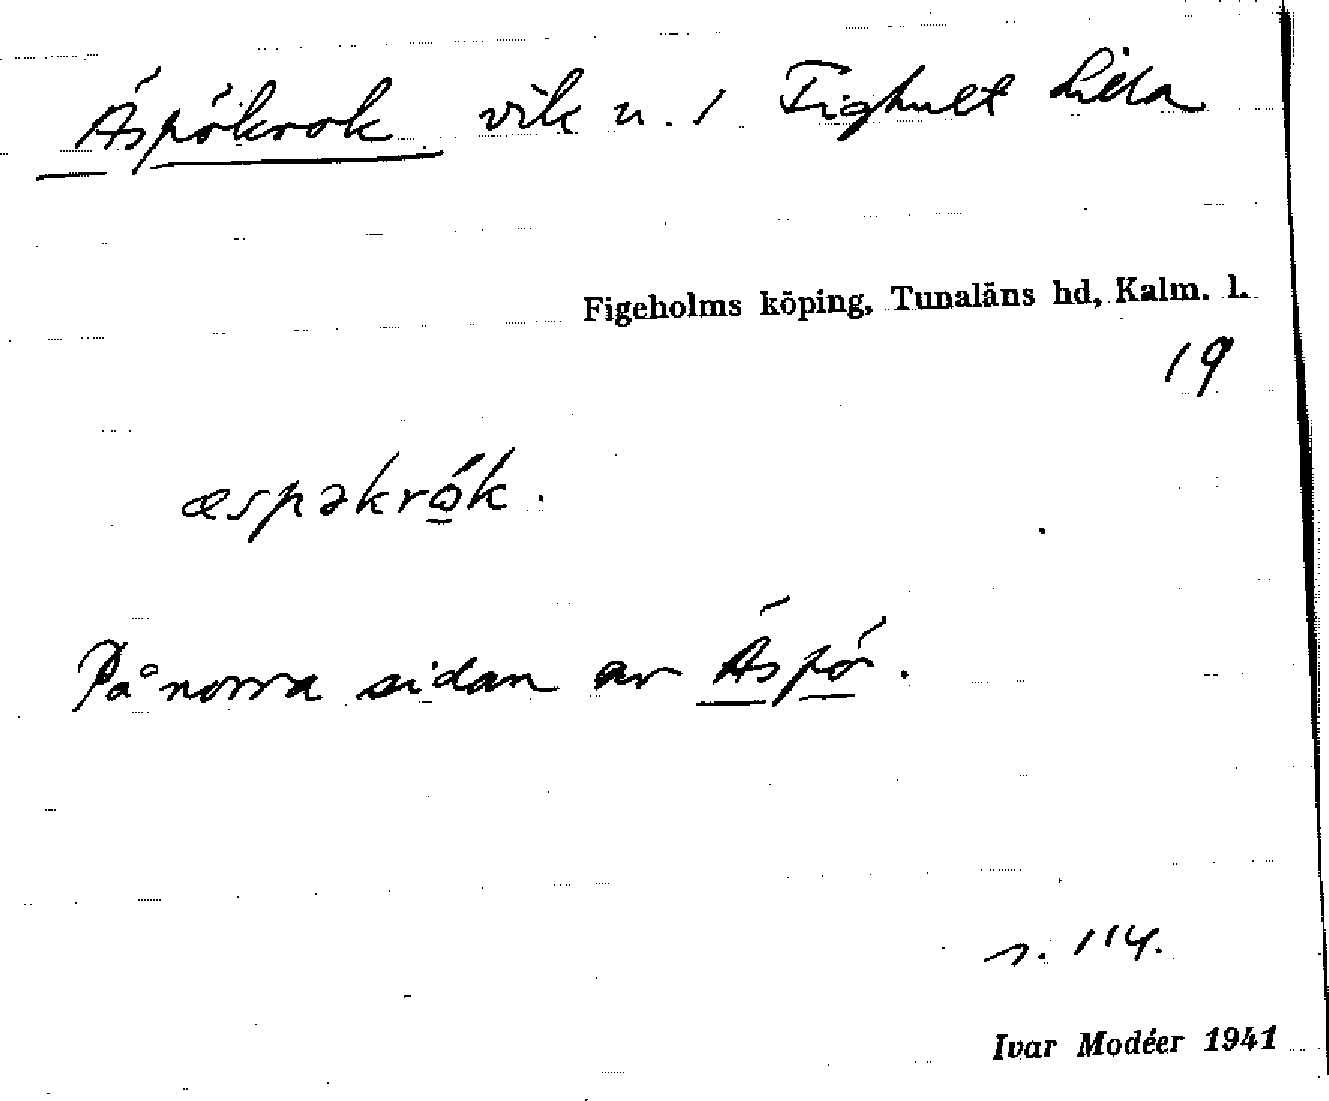 Äspökrok vik u. 1 Fighult Lilla
Figeholms köping, Tunaläns hd, Kalm. l.
19
æspəkrók.
På norra sidan av Äspö.
s. 114.
Ivar Modéer 1941